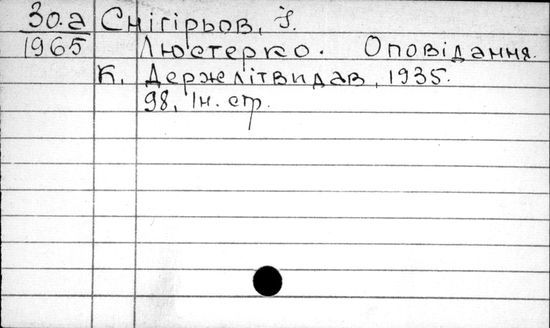 30.а Снігірьов, І.
1965 Люстерко. Оповідання.
К. Держлітвидав, 1935.
98, Ін. стр.